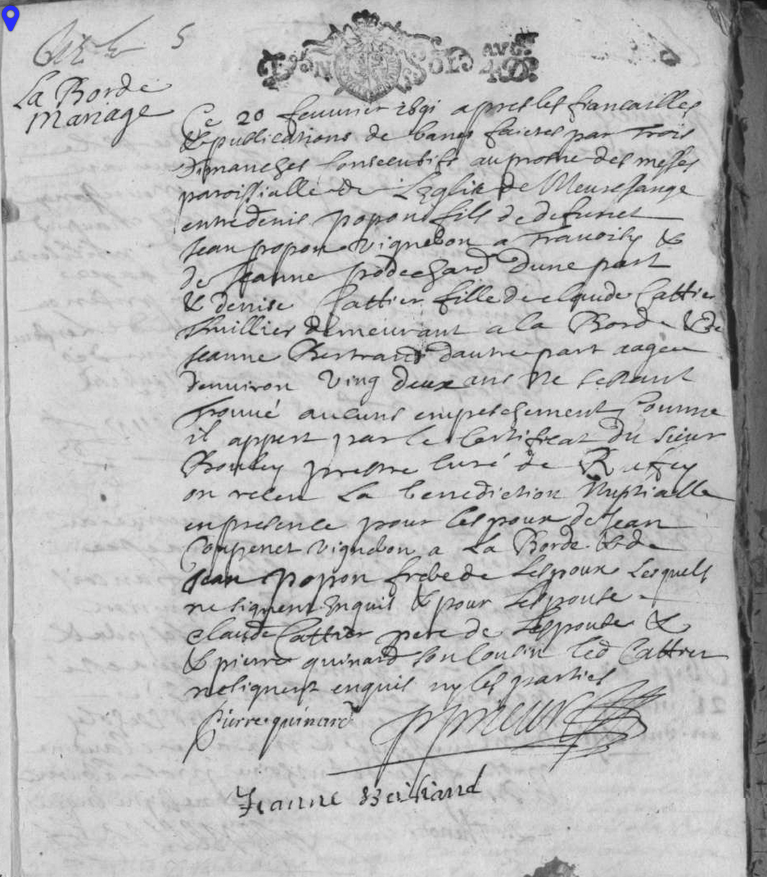 5
La Borde
Mariage
Ce 20 feuurier 1691 apres les fiancailles
& publications de bancs faictes par trois
dimanches consecutifs au prone des messes
paroissialle de Leglise de Meursange
entre denis popon fils de defunct
Jean popon vigneron a &
de Jeanne d'une part
& denise Cattier fille de claude Cattier
thuillier demeurant a la Borde & de
Jeanne Bertrand dautre part aagee
denuiron ving deux ans ne sestant
trouué aucuns empeschement comme
il appert par le Certificat du sieur
prestre curé de Ruffey
on receu La benediction Nuptialle
en presence pour lespoux de Jean
vigneron a La Borde & de
Jean popon frere de Lespoux Lesquels
ne signent enquis & pour Lespouse
claude Cattier pere de Lespouse &
& pierre quinard son cousin led Cattier
ne signent enquis ny les parties
Pierre quinard
Jeanne Bertrand